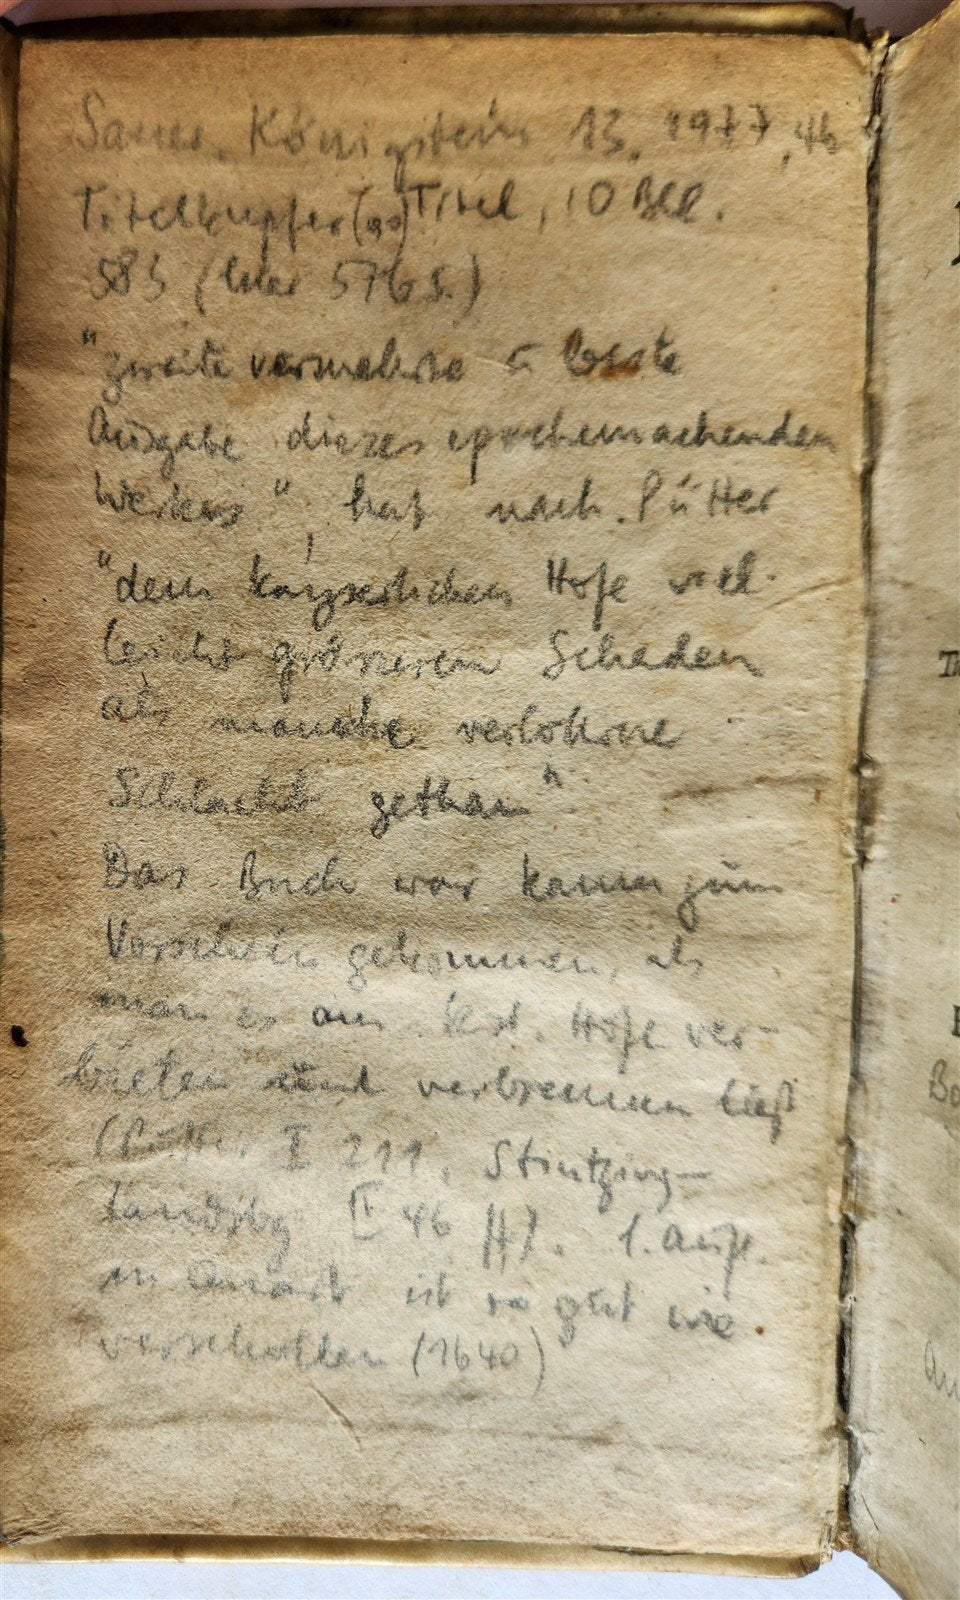 Sauer, Königstein 13, 1977, 46
Titelkupfer Titel, 10 Bll.
583 (hier 576 S.)
"zweite vermehrte u beste
Ausgabe dieses epochemachenden
Werkes", hat nach Pütter
"dem kayserlichen Hofe viel-
leicht grösseren Schaden
als manche verlohrne
Schlacht gethan"
Das Buch war kaum zum
Vorschein gekommen, als
man es am Hofe ver-
bieten und verbrennen ließ
(Pütter I 211, Stintzing-
Landsbg II 46 ff). 1. Aufl.
in Quart ist so gut wie
verschollen (1640)